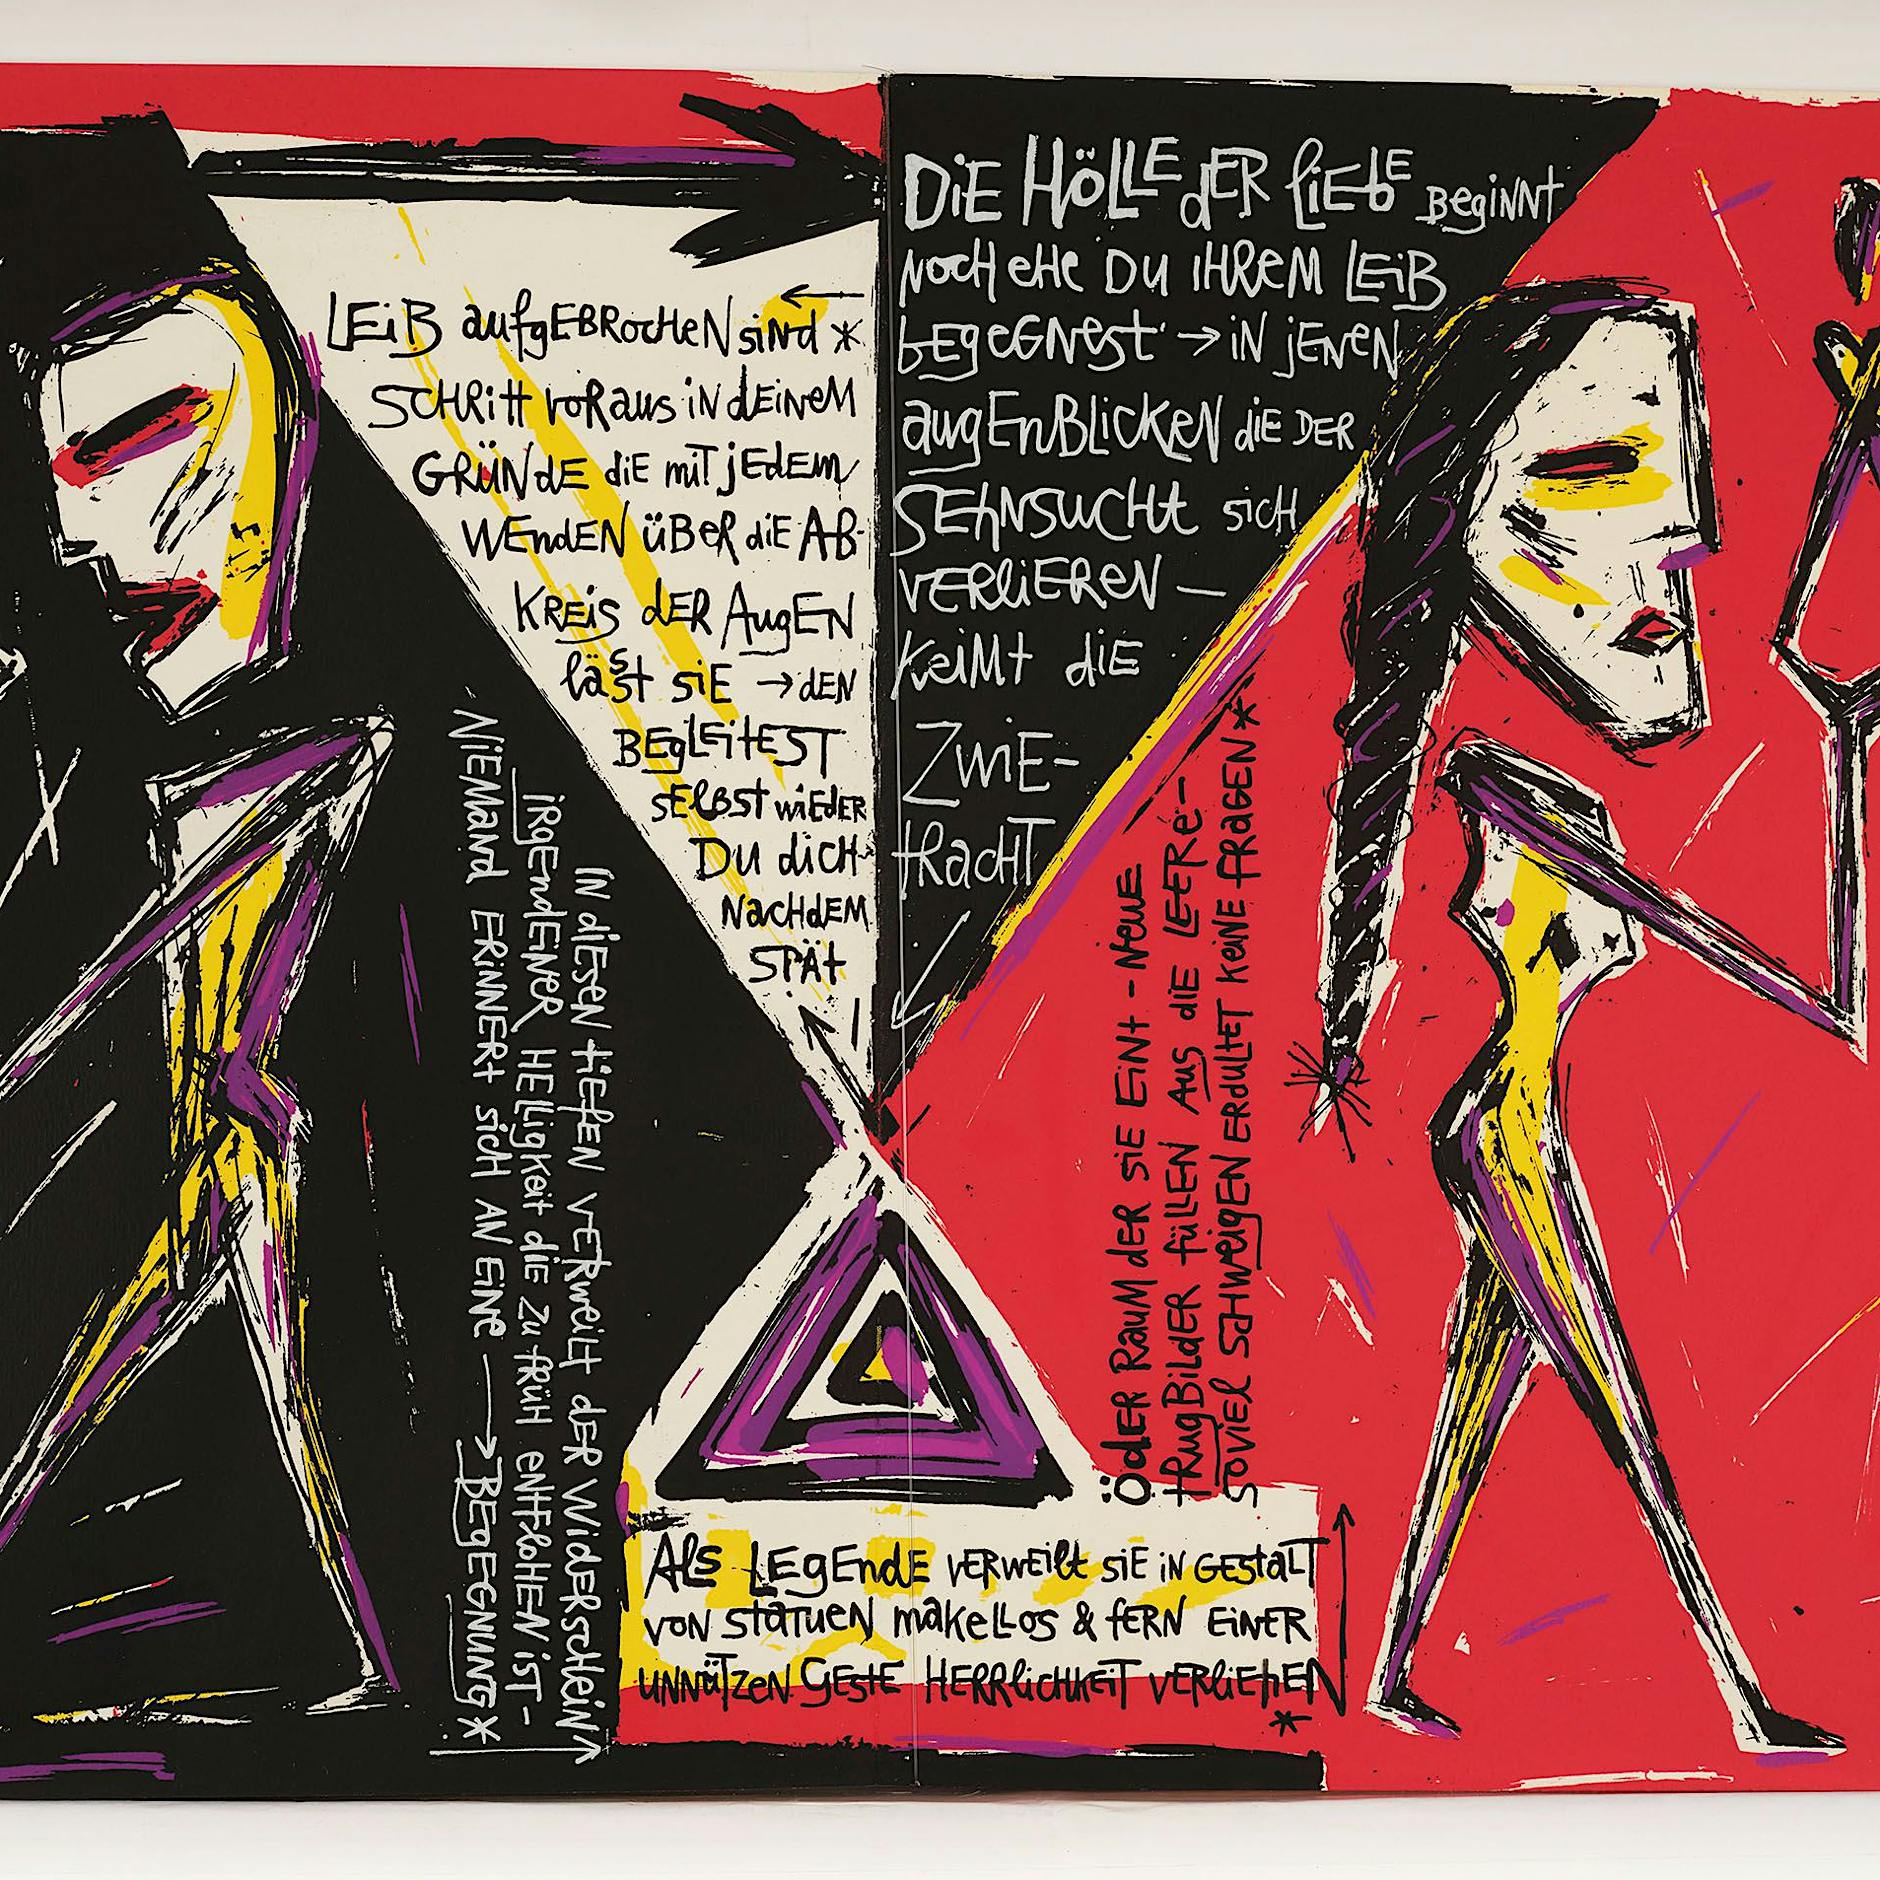 LEiB aufgEBROCHEN sind *
SCHRitt voRaus iN dEiNEM
GRÜNdE diE mit jEdEM
WENdEN üBER diE AB-
KREis dER AugEN
läSSt siE → dEN
BEglEitEST
sElBst wiEdER
Du dich
NacHdEM
SPÄt
DiE HöLLE dER liEbE BEgiNNt
NocH eHe DU iHREM LEiB
bEgEGNEst → iN jENEN
augENBLickEN diE DER
SEHNSUCHt sicH
VERliEREN —
kEiMt diE
ZwiE-
tRacHT
IN diESEN tiEfEN VERWEilt dER WidERScHEiN
iRgENdEiNER HEiligkEit diE zu fRÜH ENtfloHEN iST -
NiEMaNd ERiNNERt sicH AN EiNE → BEgEGNUNG *
ÖdER RauM dER siE EiNt - NEUE
tRugBildER füllEN Aus diE LEERE -
SoviEl ScHWEigEN ERdultEt KEiNE fRAGEN *
Als LEgENdE vERWEilt siE iN GEstalT
voN StatuEN makEllos & fERN EiNER
uNNützEN GEstE HERRlicHkEiT vERliEHEN
*